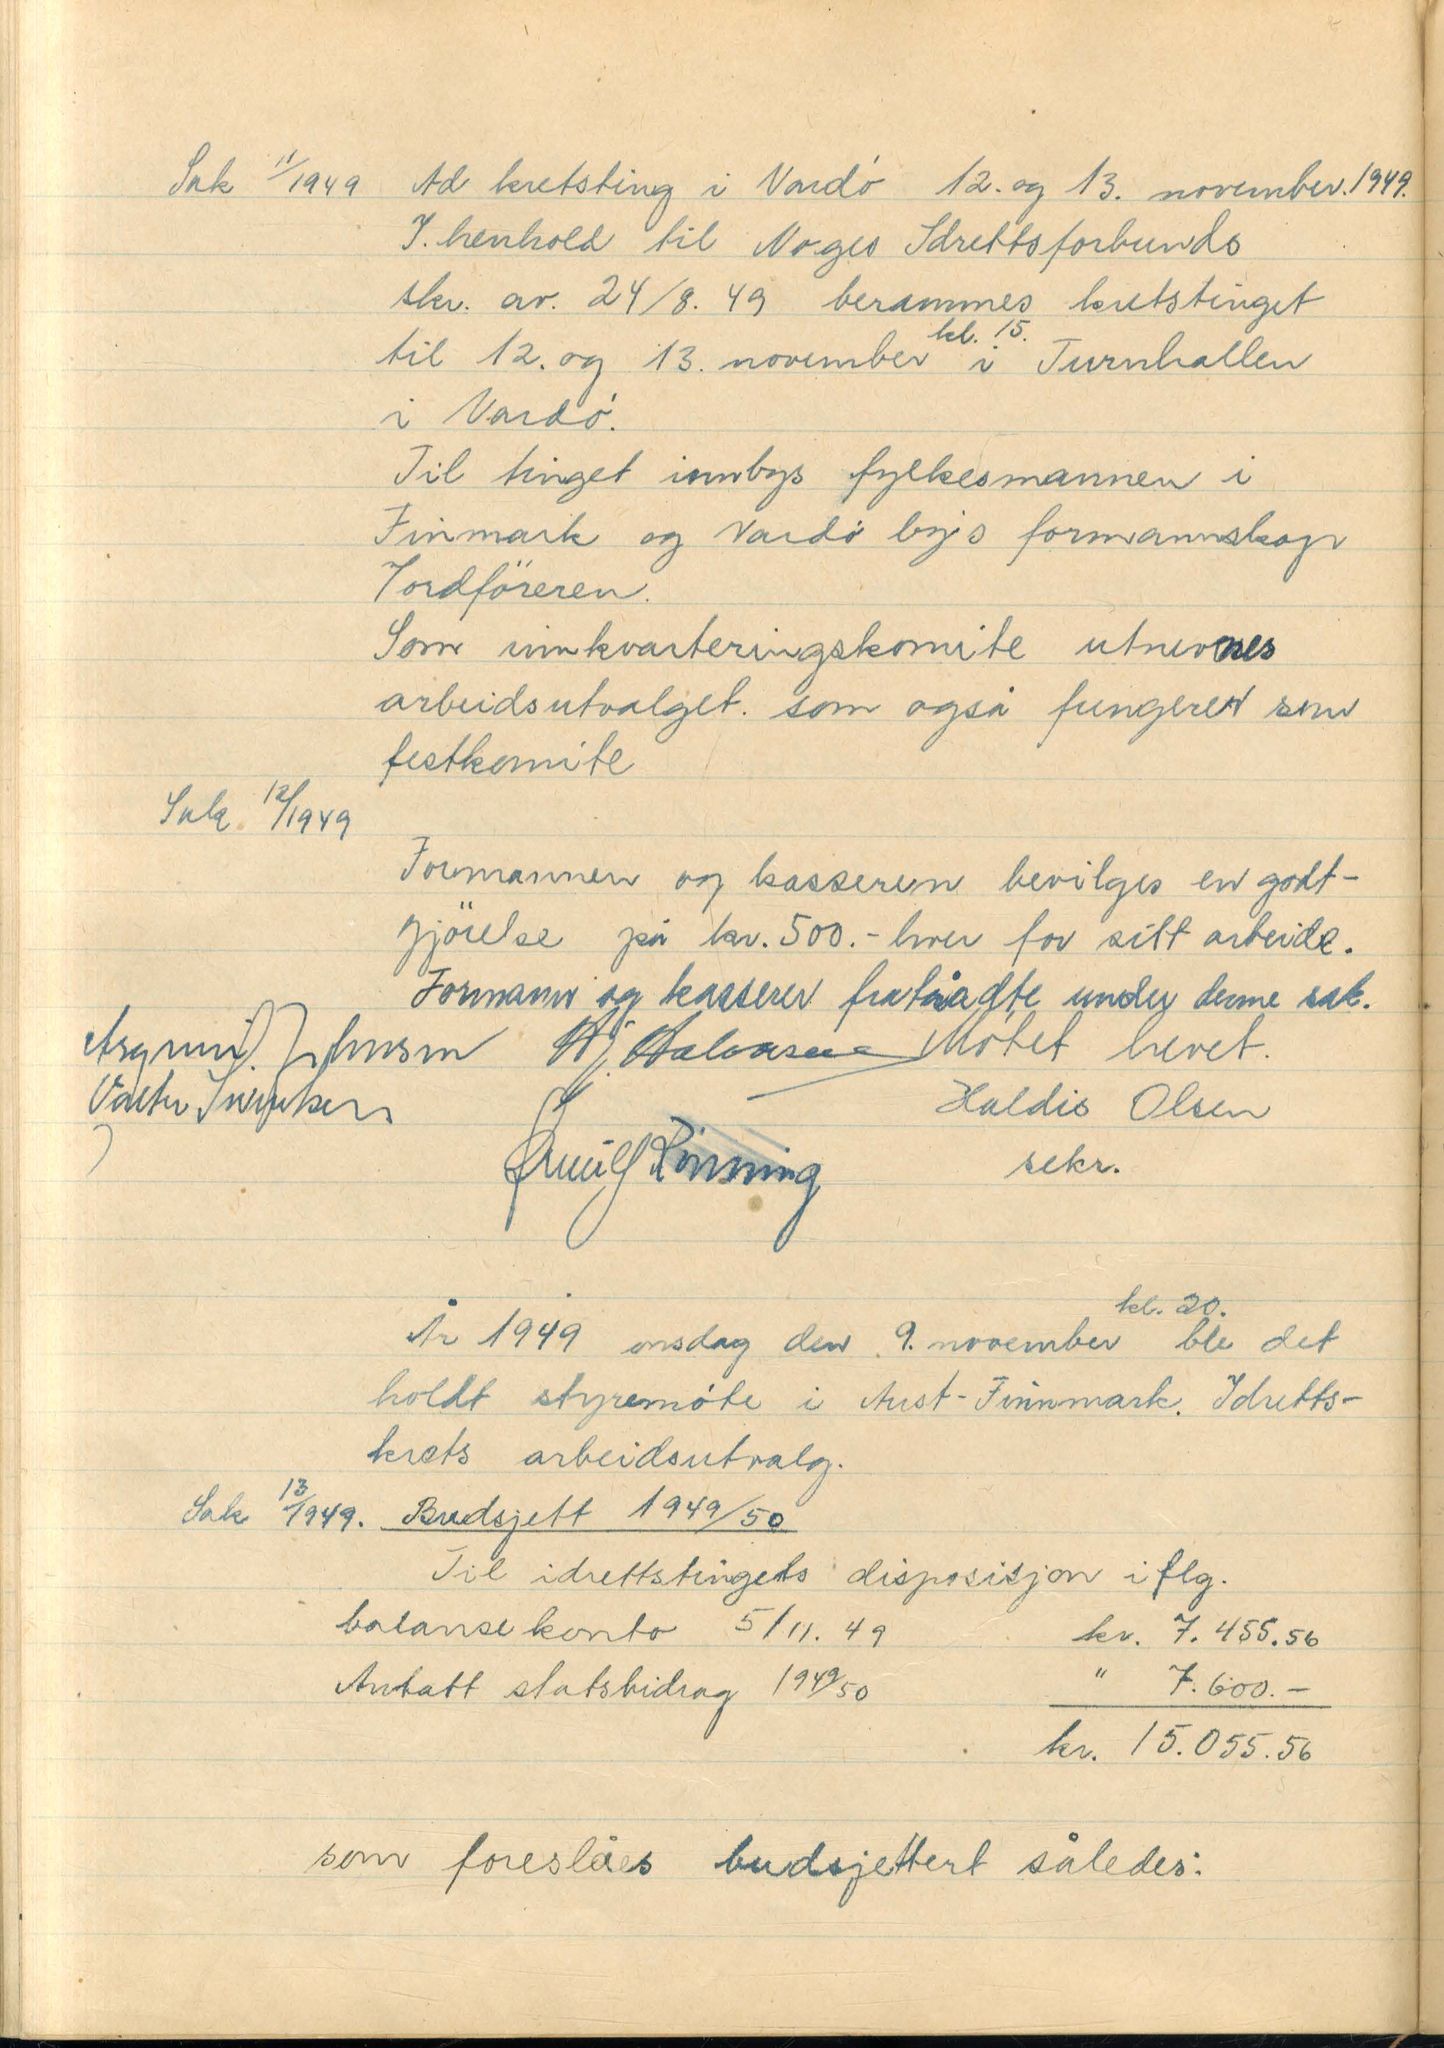 Sak 11/1949 Ad kretsting i Vardö 12. og 13. november. 1949.
I. henhold til Noges Idrettsforbunds
skr. av. 24/8. 49 berammes kretstinget
til 12. og 13. november kl. 15. i Turnhallen
i Vardö.
Til tinget innbys fylkesmannen i
Finmark og Vardö bys formannskap
Fordföreren.
Som innkvarteringskomite utnevnes
arbeidsutvalget. som også fungerer som
festkomite
Sak 12/1949
Formannen og kasseren bevilges en godt-
gjörelse på kr. 500.- hver for sitt arbeide.
Formann og kasserer fratrådte under denne sak.
Johnsen Hj. Halvorsen Mötet hevet.
Haldis Olsen
Rönning sekr.
År 1949 onsdag den 9. november kl. 20. ble det
holdt styremöte i Aust-Finnmark. Idretts-
krets arbeidsutvalg.
Sak 13/1949. Budsjett 1949/50
Til idrettstingets disposisjon iflg.
balansekonto 5/11. 49 kr. 7.455.56
Antatt statsbidrag 1949/50 " 7.600.-
kr. 15.055.56
som foreslåes budsjettert således: